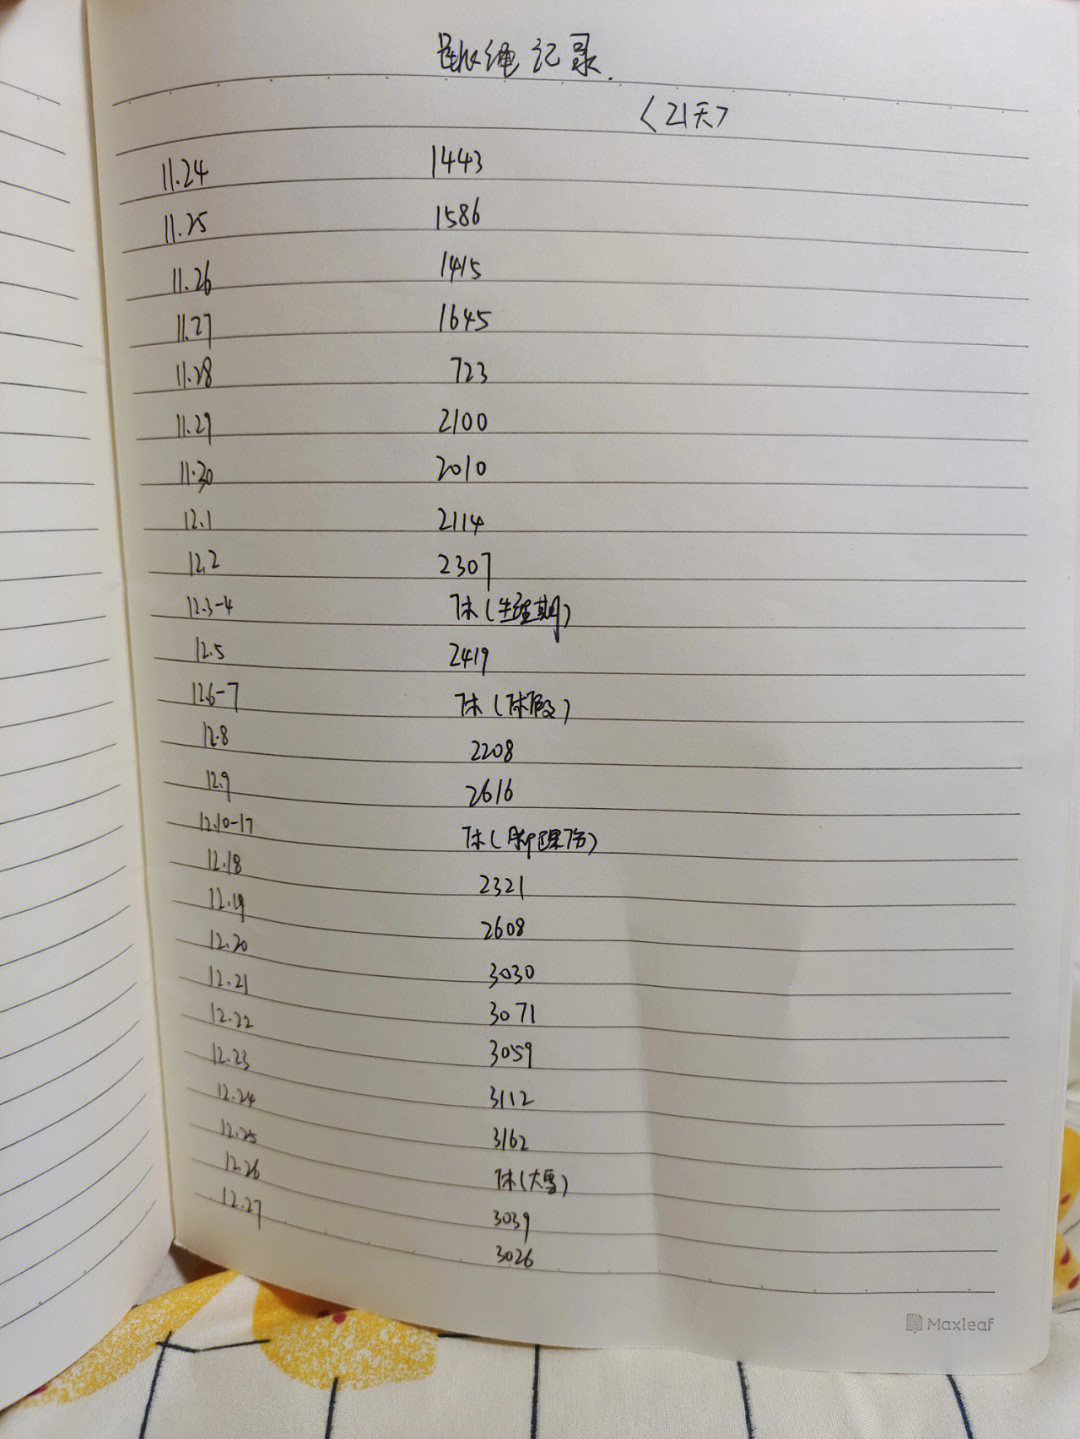 跳绳记录.
<21天>
11.24 1443
11.25 1586
11.26 1415
11.27 1645
11.28 723
11.29 2100
11.30 2010
12.1 2114
12.2 2307
12.3-4 休(生理期)
12.5 2419
12.6-7 休(休假)
12.8 2208
12.9 2616
12.10-17 休(脚踝伤)
12.18 2321
12.19 2608
12.20 3030
12.21 3071
12.22 3059
12.23 3112
12.24 3162
12.25 休(大雪)
12.26 3039
12.27 3026
Maxleaf